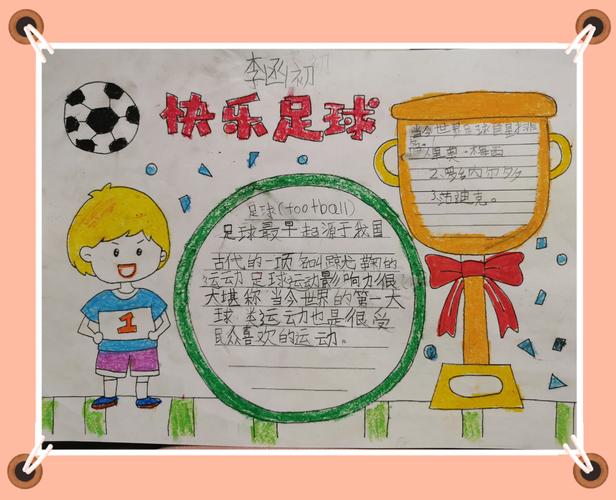 李函初
快乐足球
足球(football)
足球最早起源于我国
古代的一项名叫蹴鞠的
运动 足球运动影响力很
大堪称 当今世界的第一大
球 类运动力也是很受
民众喜欢的运动。
当今世界足球巨星排
1.里奥·梅西
2.罗纳尔多
3.范迪克。
1